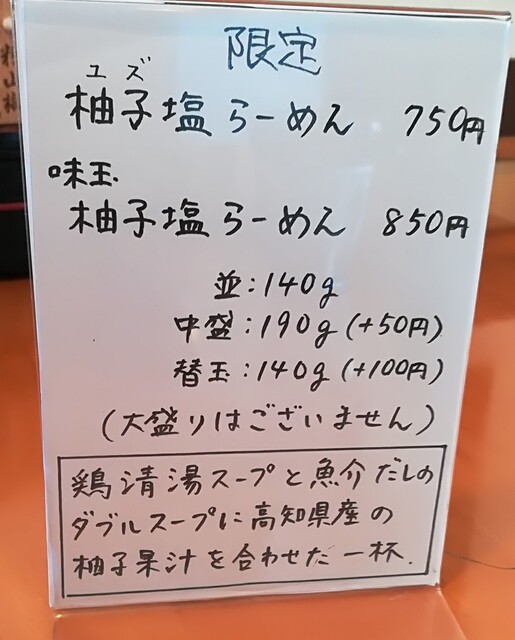 限定
ユズ
柚子塩らーめん 750円
味玉.
柚子塩らーめん 850円
並:140g
中盛:190g(+50円)
替玉:140g(+100円)
(大盛りはございません)
鶏清湯スープと魚介だしの
ダブルスープに高知県産の
柚子果汁を合わせた一杯.